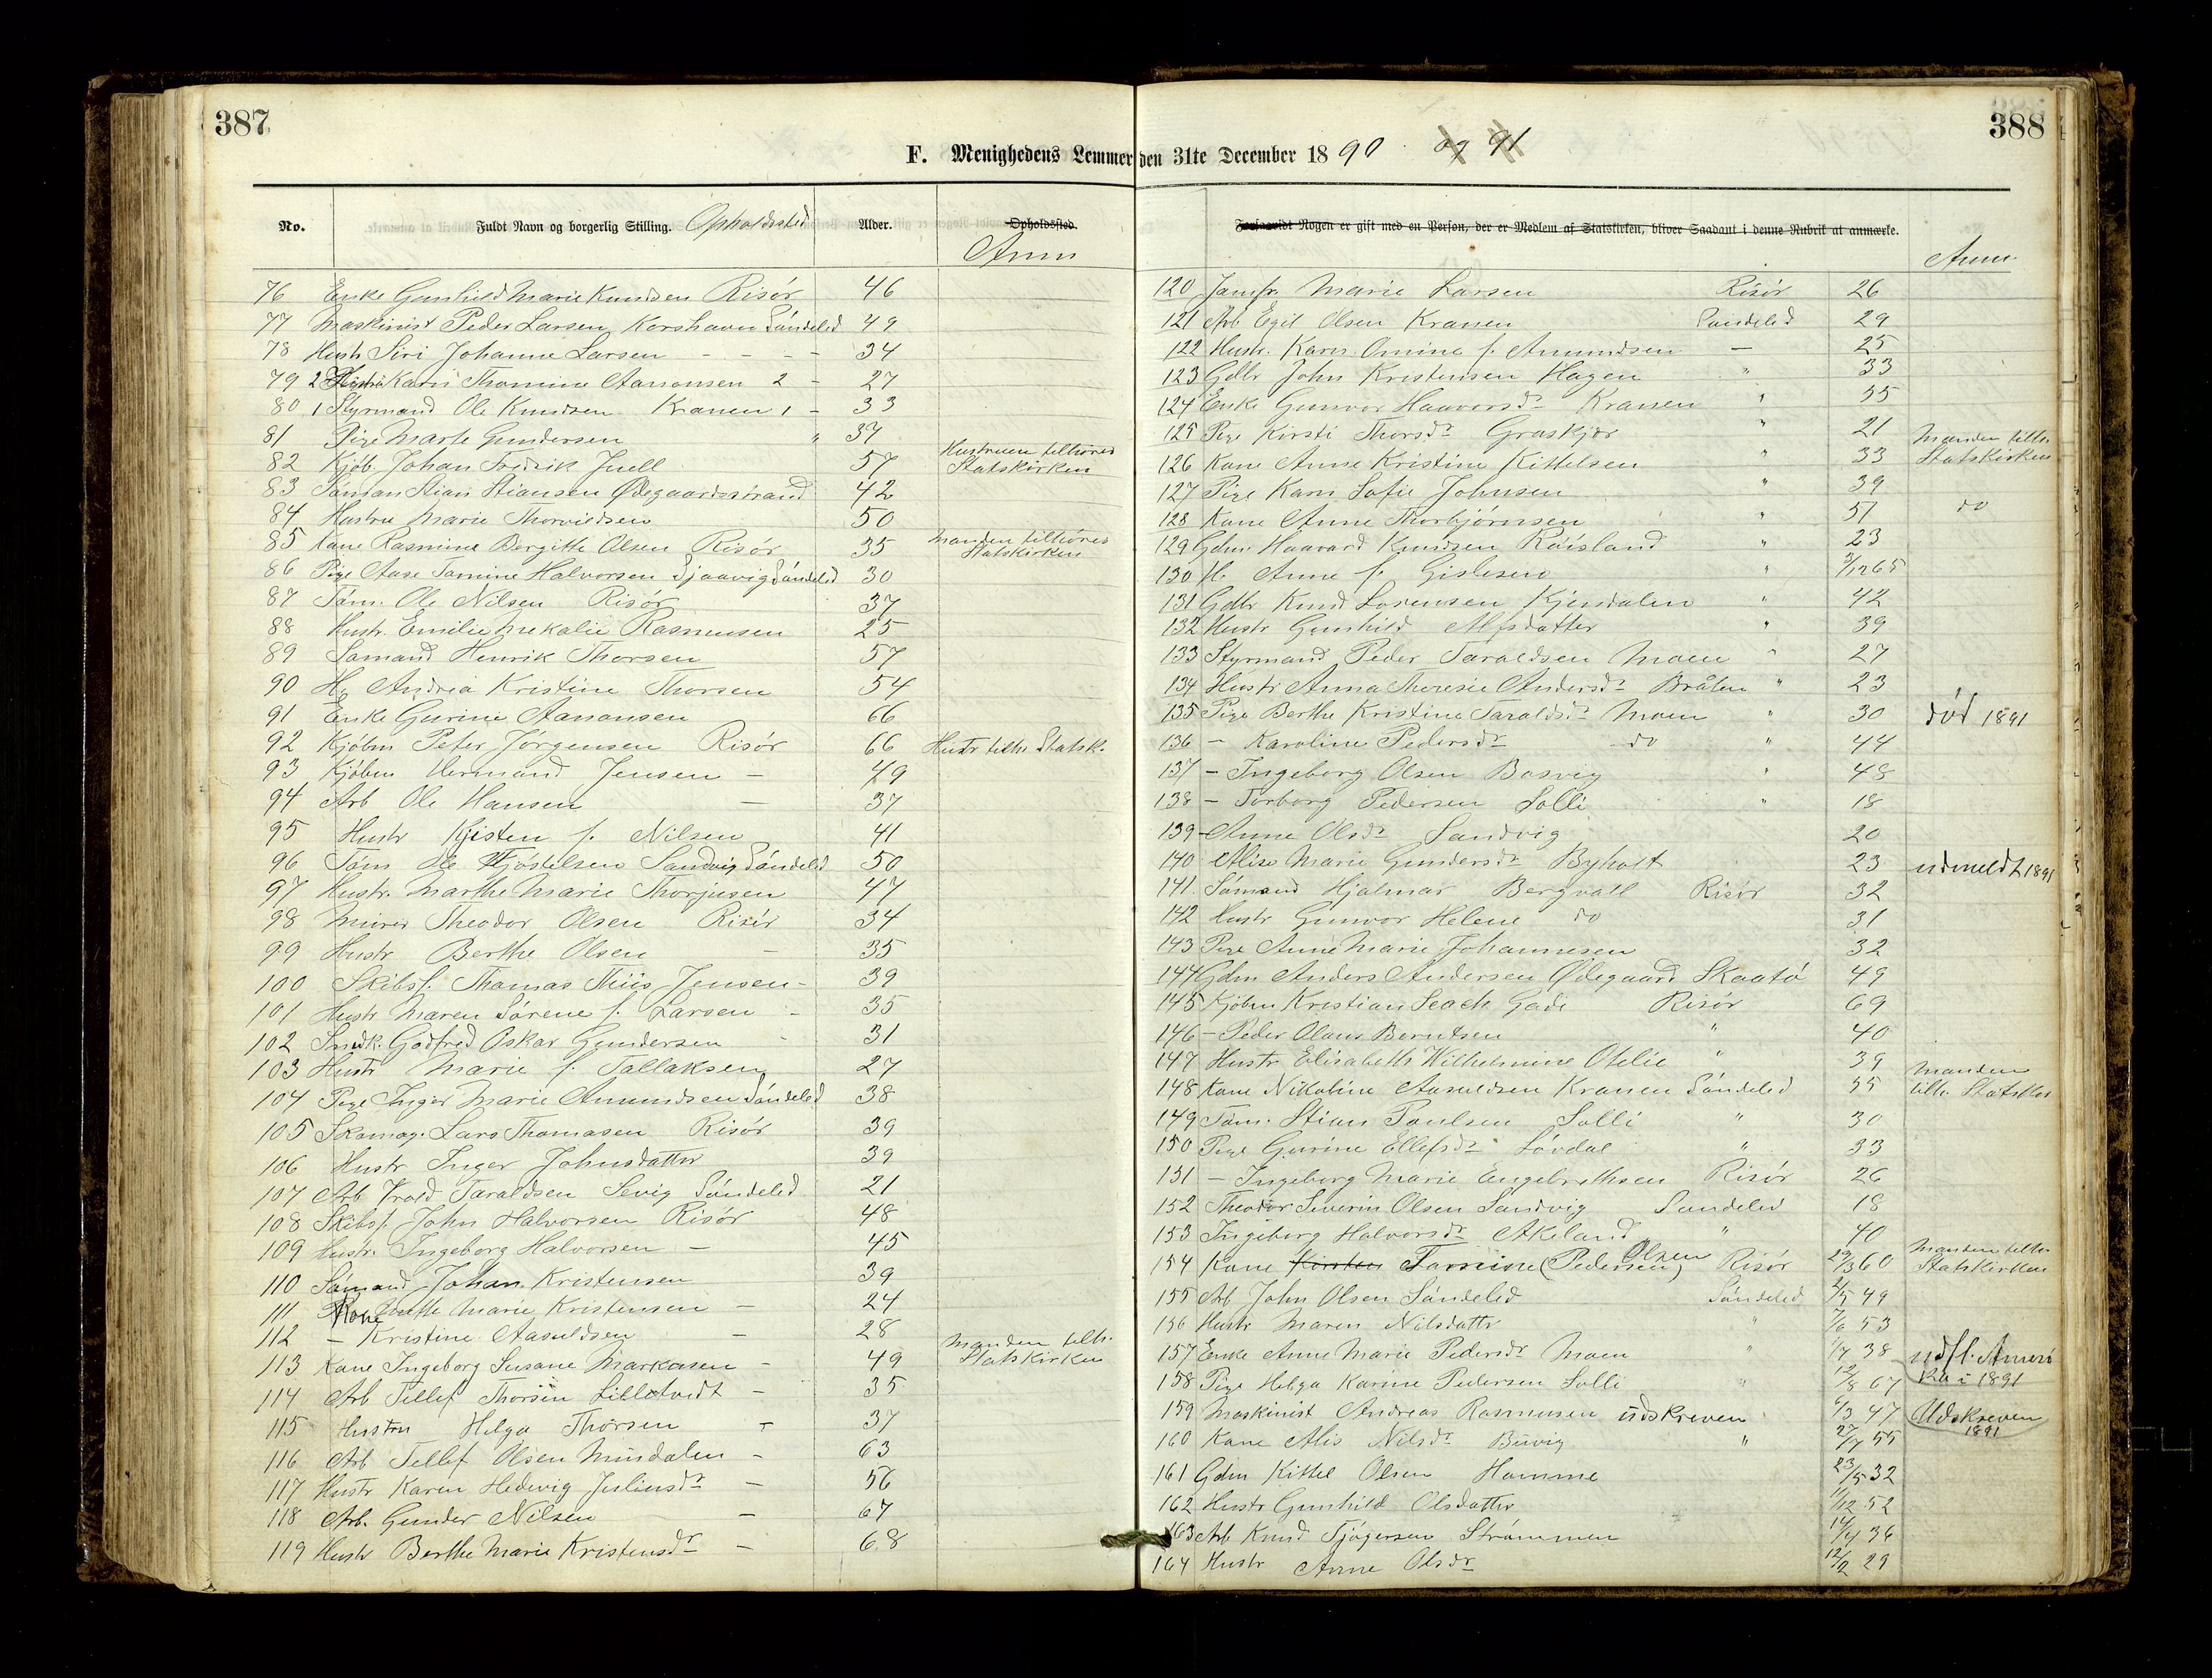 387
F. Menighedens Lemmer den 31te December 1890 og 91
388
No.
Fuldt Navn og borgerlig Stilling. Opholdssted
Alder.
Opholdssted.
Anm
76 Enke Gunhild Marie Knudsen Risør 46
77 Maskinist Peder Larsen Korshavn Söndeled 49
78 Hustr Siri Johanne Larsen - - - - 34
79 2 Hustr Karn Thomine Aanonsen 2 - 27
80 1 Styrmand Ole Knudsen Kranen 1 - 33
81 Pige Marte Gundersen " 37
82 Kjöb. Johan Fredrik Juell 57 Hustruen tilhörer Statskirken
83 Söman Stian Stiansen Ødegaardsstrand 42
84 Hustru Marie Thorvildsen 50
85 Kone Rasmine Bergitte Olsen Risör 35 Manden tilhörer Statskirken
86 Pige Aase Tomine Halvorsen Sjaavig Söndeled 30
87 Töm. Ole Nilsen Risör 37
88 Hustr. Emilie Mekalie Rasmussen 25
89 Sömand Henrik Thorsen 57
90 H. Andrea Kristine Thorsen 54
91 Enke Gurine Aanonsen 66
92 Kjöbm Peter Jörgensen Risör 66 Hustr tilh. Statsk.
93 Kjöbm Hermand Jensen - 49
94 Arb Ole Hansen - 37
95 Hustr Kjisten f. Nilsen 41
96 Töm Ole Tjöstelsen Sandvig Söndeled 50
97 Hustr. Marthe Marie Thorjusen 47
98 Murer Theodor Olsen Risör 34
99 Hustr Berthe Olsen - 35
100 Skibsf. Thomas Thiis Jensen - 39
101 Hustr Maren Sörene f. Larsen - 35
102 Snedk. Godfred Oskar Gundersen - 31
103 Hustr Marie f. Tallaksen 27
104 Pige Inger Marie Amundsen Söndeled 38
105 Skomag. Lars Thomasen Risör 39
106 Hustr Inger Johnsdatter 39
107 Arb Taraldsen Sevig Söndeled 21
108 Skibsf. John Halvorsen Risör 48
109 Hustr. Ingeborg Halvorsen - 45
110 Sömand Johan Kristensen 39
111 Kone Marie Kristensen - 24
112 - Kristine Aasuldsen - 28
113 Kone Ingeborg Susane Markusen - 49 Manden tilh. Statskirken
114 Arb Tellef Thorsen Lillotvedt - 35
115 Hustru Helga Thorsen - 37
116 Arb Tellef Olsen Mindalen - 63
117 Hustr Karen Hedevig Juliusdr - 56
118 Arb. Gunder Nilsen - 67
119 Hustr Berthe Marie Kristensdr - 68
Forsaavidt Nogen er gift med en Person, der er Medlem af Statskirken, bliver Saadant i denne Rubrik at anmærke.
Anm.
120 Jomfr. Marie Larsen Risör 26
121 Arb Egil Olsen Kranen Söndeled 29
122 Hustr. Karn Omine f. Amundsen - 25
123 Gdbr John Kristensen Hagen " 33
124 Enke Gunvor Haavorsdr Kranen " 55
125 Pige Kirsti Thorsdr Graskjær " 21
126 Kone Anne Kristine Kittelsen " 33 Manden tilh. Statskirken
127 Pige Karn Sofie Johnsen " 39
128 Kone Anne Thorbjörnsen " 51 do
129 Gdm. Haavard Knudsen Röisland " 23
130 H. Anne f. Gislesen " 3/12 65
131 Gdbr Knud Lorensen Kjendalen " 42
132 Hustr Gunhild Alfsdatter " 39
133 Styrmand Peder Taraldsen Moen " 27
134 Hustr Anna Theresie Andersdr Bråten " 23
135 Pige Berthe Kristine Taraldsdr Moen " 30 död 1891
136 - Karoline Pedersdr do " 44
137 - Ingeborg Olsen Bosvig " 48
138 - Torborg Pedersen Solli " 18
139 - Anne Olsdr Sandvig 20
140 Alise Marie Gundersdr Byholt 23 udmeldt 1891
141. Sömand Hjalmar Bergvall Risör 32
142 Hustr Gunvor Helene do 31
143 Pige Anne Marie Johannesen 32
144 Gdm Anders Andersen Ødegaard Skaatö 49
145 Kjöbm Kristian Gade Risör 69
146 - Peder Olaus Berntsen " 40
147 Hustr. Elisabeth Wilhelmine Otelie " 39
148 Kone Nikoline Aasuldsen Kranen Söndeled 55 Manden tilh. Statskir
149 Töm. Stian Paulsen Solli " 30
150 Pige Gurine Ellefsdr Lövdal " 33
151 - Ingeborg Marie Engebrethsen Risör 26
152 Theodor Severin Olsen Sandvig Söndeled 18
153 Ingeborg Halvorsdr Akeland " 40
154 Kone Kirsten Tomine (Pedersen) Olsen Risör 29/3 60 Manden tilh. Statskirken
155 Arb John Olsen Söndeled Söndeled 2/5 49
156 Hustr Maren Nilsdattr " 7/6 53
157 Enke Anne Marie Pedersdr Moen " 1/7 38
158 Pige Helga Karine Pedersen Solli " 12/8 67 udfl. Amerika i 1891
159 Maskinist Andreas Rasmussen udskreven 6/3 47 Udskreven 1891
160 Kone Alis Nilsdr Buvig " 27/7 55
161 Gdm Kittel Olsen Homme 23/5 32
162 Hustr Gunhild Olsdatter 11/12 52
163 Arb Knud Tjögersen Strömmen 14/4 36
164 Hustr Anne Olsdr 12/2 29